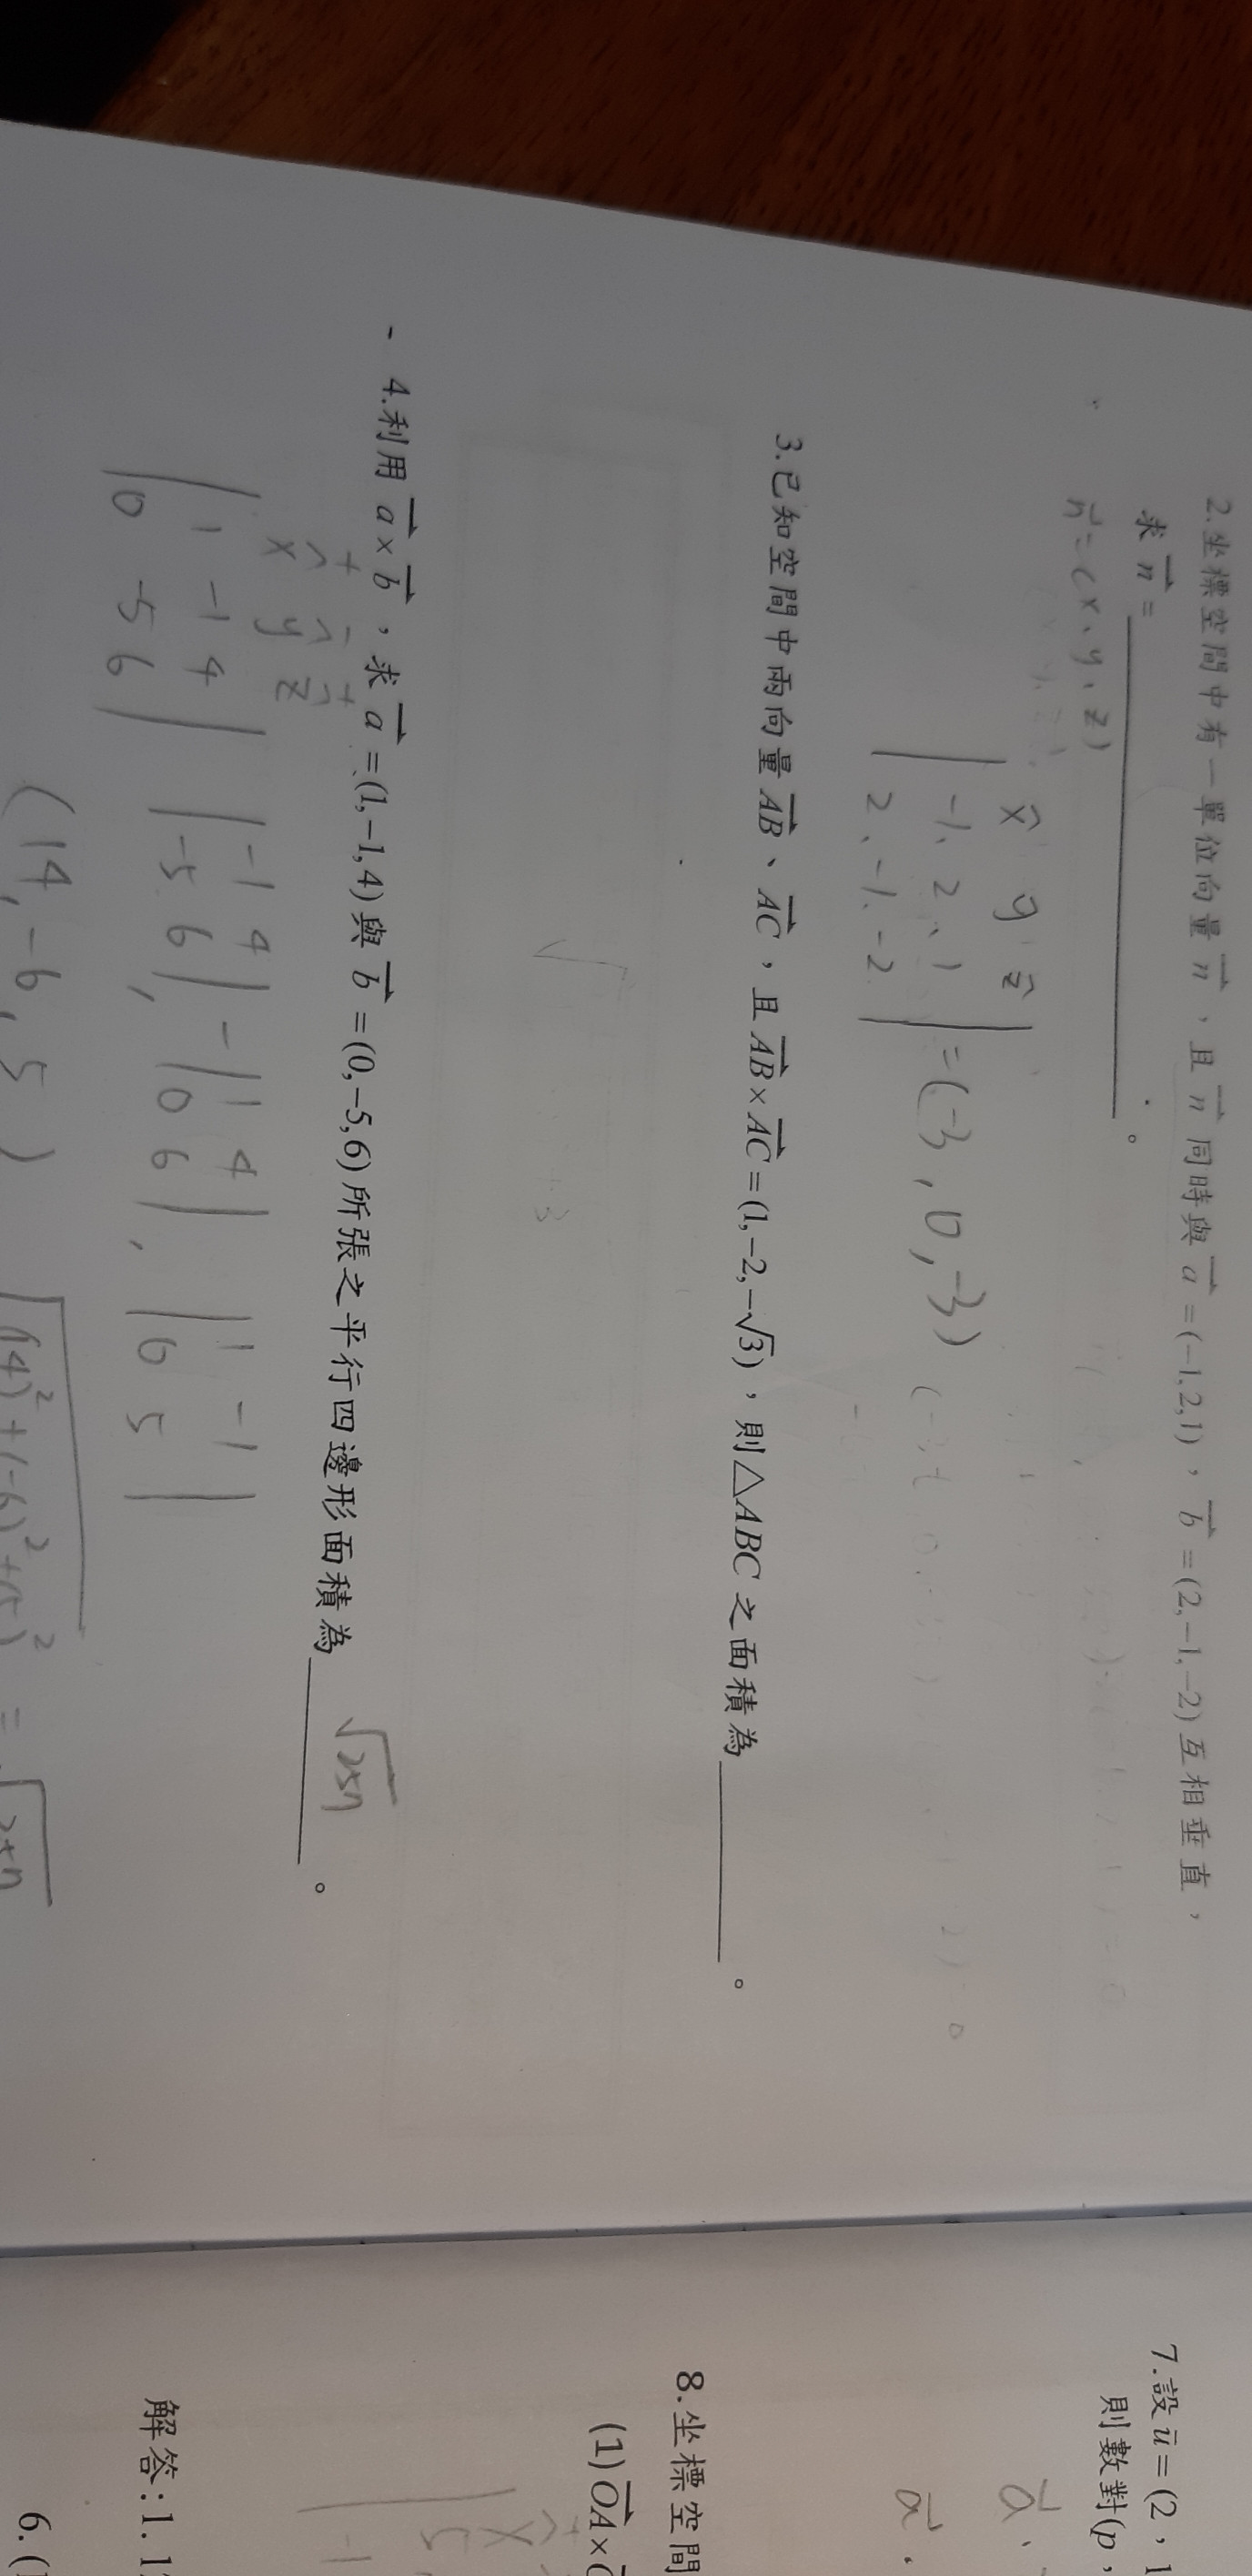 2.坐標空間中有一單位向量 n，且 n 同時與 a=(-1,2,1)，b=(2,-1,-2)互相垂直，
求 n = ＿＿＿＿＿＿。
n=(x、y、z)
x y z
-1、2、1
2、-1、-2
=(-3,0,-3)
3.已知空間中兩向量AB、AC，且AB×AC=(1,-2,-√3)，則△ABC之面積為＿＿＿＿。
4.利用 a×b，求 a=(1,-1,4)與 b=(0,-5,6)所張之平行四邊形面積為＿＿＿＿。
√257
+ - +
x y z
1 -1 4
0 -5 6
|-1 4| , -|1 4| , |1 -1|
|-5 6| |0 6| |0 5|
(14,-6,5)
√(14)²+(-6)²+(5)² = √257
7.設u=(2,1
則數對(p,
a.
a.
8.坐標空間
(1)OA×
解答:1.
6.(